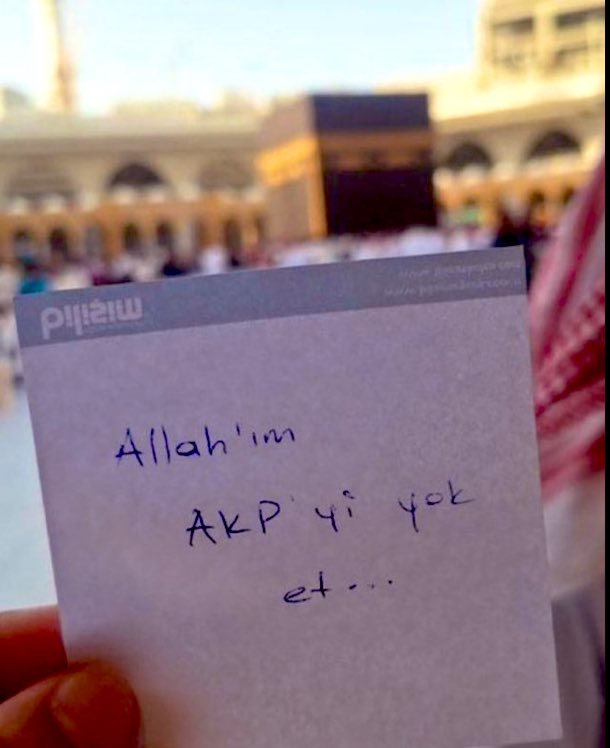 Allah'ım
AKP'yi yok
et...